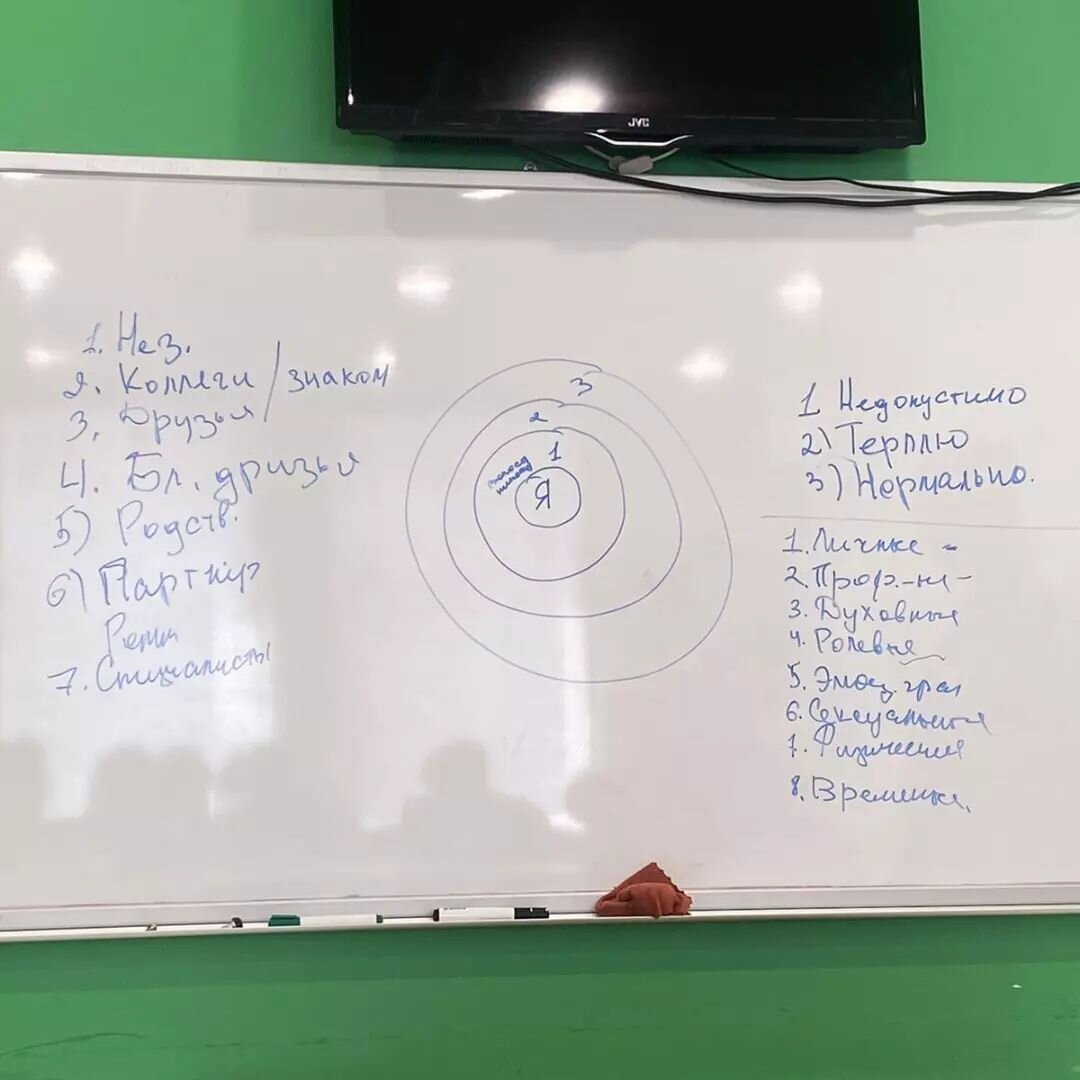 JVC
1. Нез.
2. Коллеги / знаком
3. Друзья
4. Бл. дризья
5) Родств.
6) Партнір
7. Специалисты
3
2
1
Я
1 Недопустимо
2) Терплю
3) Нормально.
1. Личные -
2. Проф.-не -
3. Духовные
4. Ролевые
5. Эмоц. гран
6. Сексуальные
7. Физические
8. Временные.